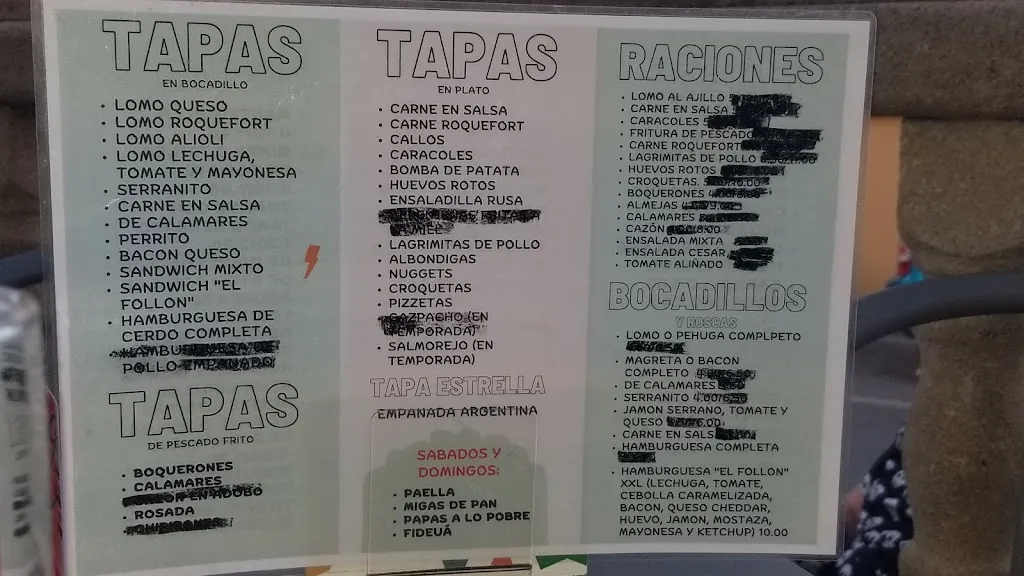 TAPAS
EN BOCADILLO
LOMO QUESO
LOMO ROQUEFORT
LOMO ALIOLI
LOMO LECHUGA,
TOMATE Y MAYONESA
SERRANITO
CARNE EN SALSA
DE CALAMARES
PERRITO
BACON QUESO
SANDWICH MIXTO
SANDWICH "EL
FOLLON"
HAMBURGUESA DE
CERDO COMPLETA
POLLO EMPANADO
TAPAS
DE PESCADO FRITO
BOQUERONES
CALAMARES
EN ADOBO
ROSADA
TAPAS
EN PLATO
CARNE EN SALSA
CARNE ROQUEFORT
CALLOS
CARACOLES
BOMBA DE PATATA
HUEVOS ROTOS
ENSALADILLA RUSA
LAGRIMITAS DE POLLO
ALBONDIGAS
NUGGETS
CROQUETAS
PIZZETAS
GAZPACHO (EN
TEMPORADA)
SALMOREJO (EN
TEMPORADA)
TAPA ESTRELLA
EMPANADA ARGENTINA
SABADOS Y
DOMINGOS:
PAELLA
MIGAS DE PAN
PAPAS A LO POBRE
FIDEUÁ
RACIONES
LOMO AL AJILLO
CARNE EN SALSA
CARACOLES
FRITURA DE PESCADO
CARNE ROQUEFORT
LAGRIMITAS DE POLLO
HUEVOS ROTOS
CROQUETAS.
BOQUERONES
ALMEJAS
CALAMARES
CAZÓN
ENSALADA MIXTA
ENSALADA CESAR
TOMATE ALIÑADO
BOCADILLOS
Y ROSCAS
LOMO O PEHUGA COMPLPETO
MAGRETA O BACON
COMPLETO
DE CALAMARES
SERRANITO
JAMON SERRANO, TOMATE Y
QUESO
CARNE EN SALS
HAMBURGUESA COMPLETA
HAMBURGUESA "EL FOLLON"
XXL (LECHUGA, TOMATE,
CEBOLLA CARAMELIZADA,
BACON, QUESO CHEDDAR,
HUEVO, JAMON, MOSTAZA,
MAYONESA Y KETCHUP) 10.00